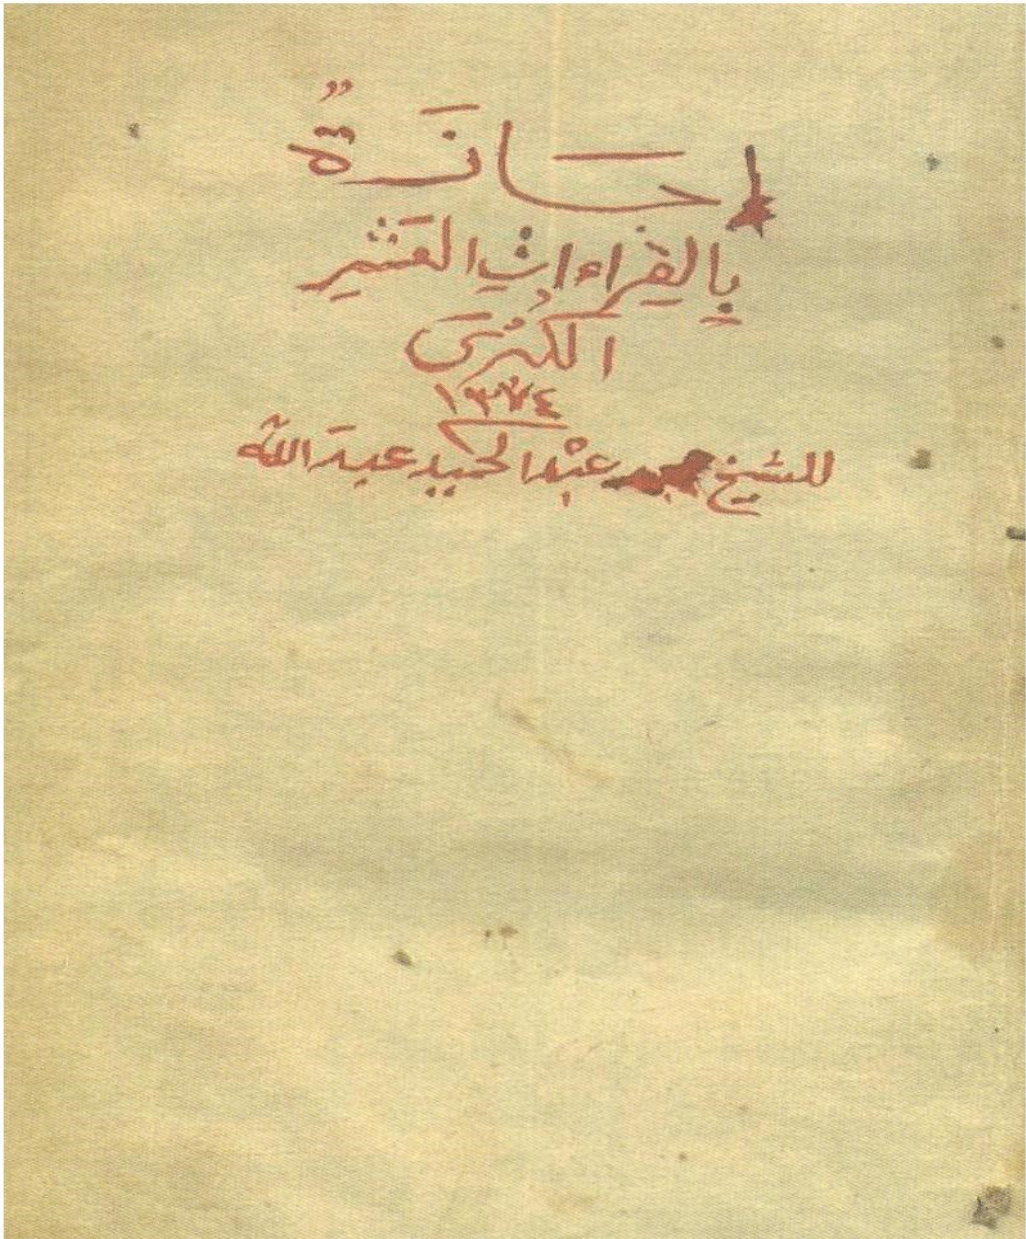 إجَازَةٌ
بِالقِرَاءاتِ العَشْرِ
الكُبْرَى
١٣٧٤
للشيخ محمد عبْد الحميد عبد الله